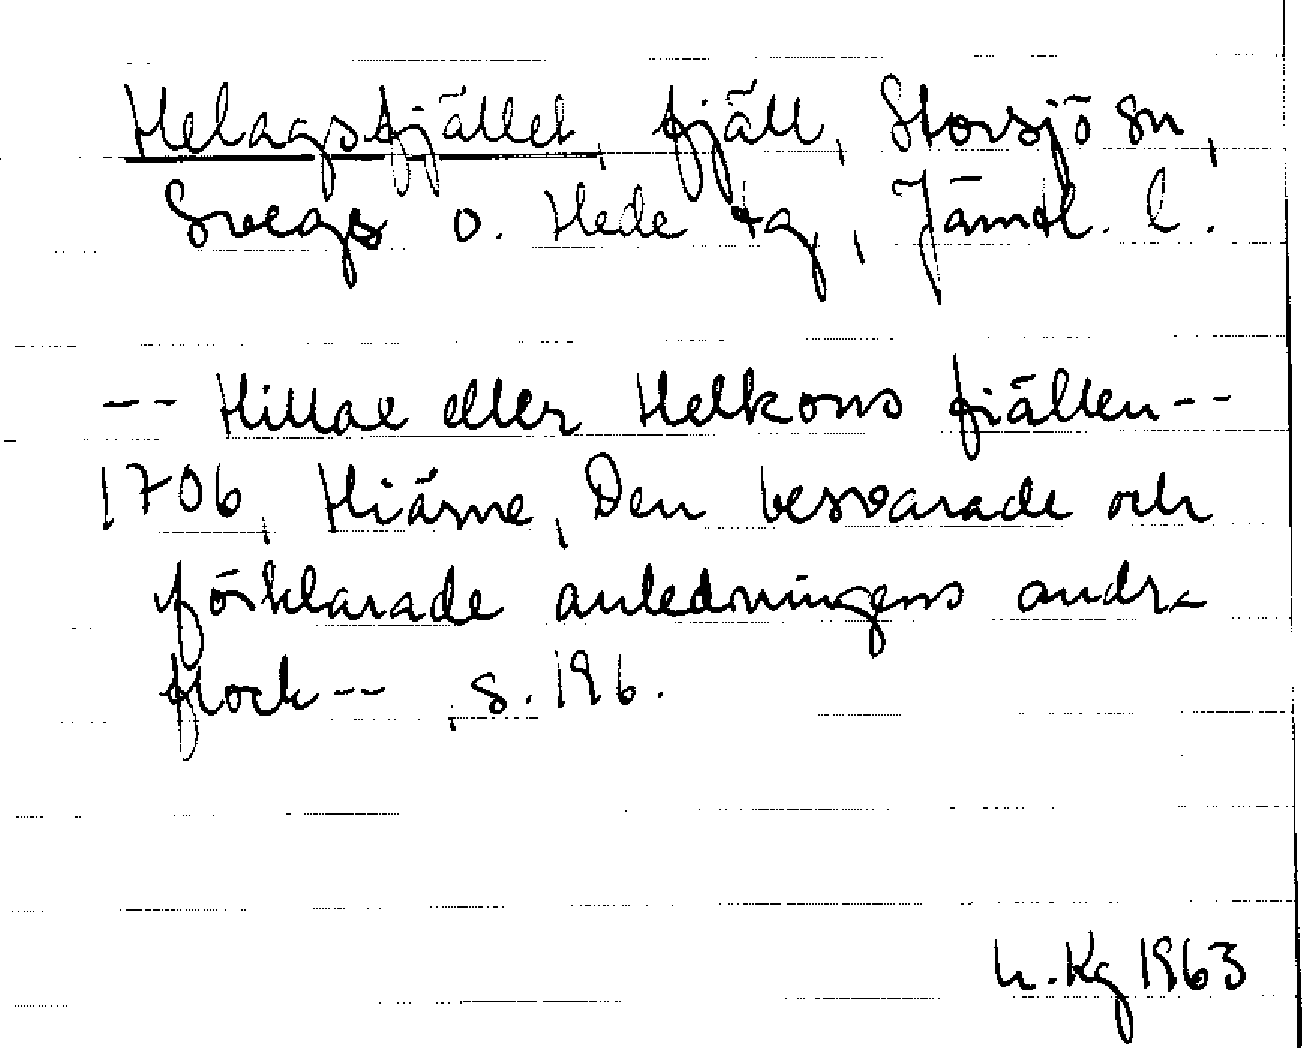 Helagsfjället, fjäll, Storsjö sn,
Svegs o. Hede tg, Jämtl. l.
-- Hillae eller Helkons fiällen --
1706, Hiärne, Den besvarade och
förklarade anledningens andra
flock -- , s. 196.
h. Kg 1963